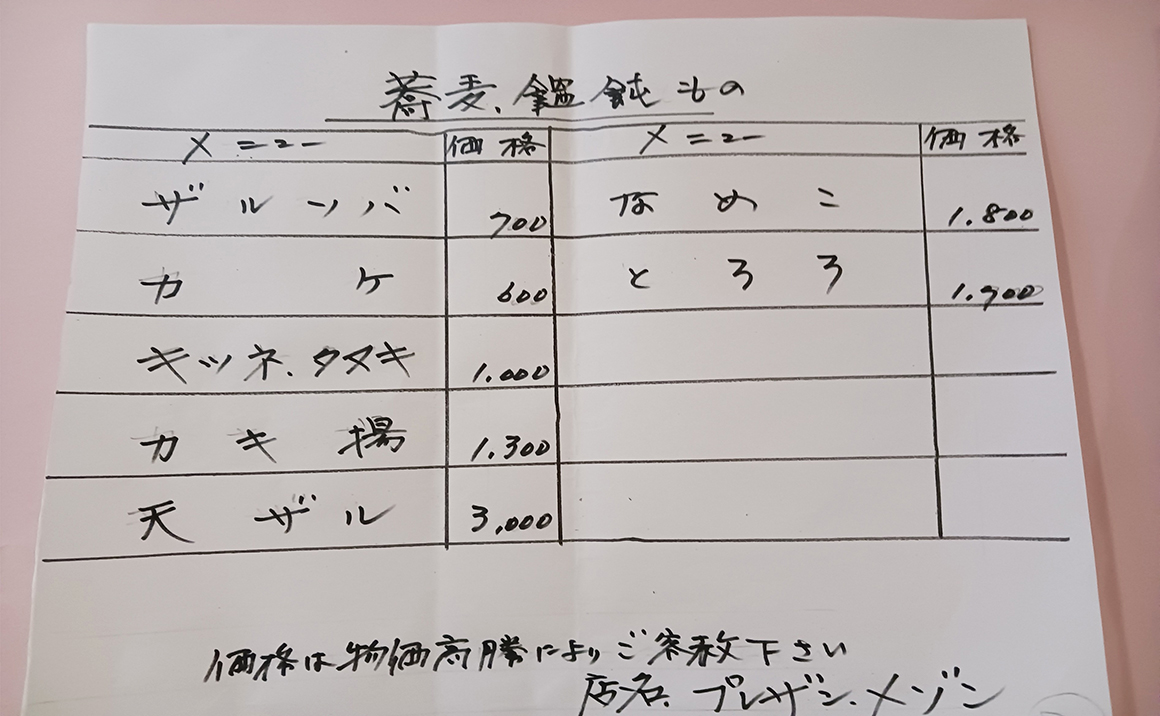 蕎麦、饂飩もの
メニュー 価格 メニュー 価格
ザルソバ 700 なめこ 1.800
カケ 600 とろろ 1.900
キツネ、タヌキ 1.000
カキ揚 1.300
天ザル 3,000
価格は物価高騰によりご容赦下さい
店名、プレザン、メゾン